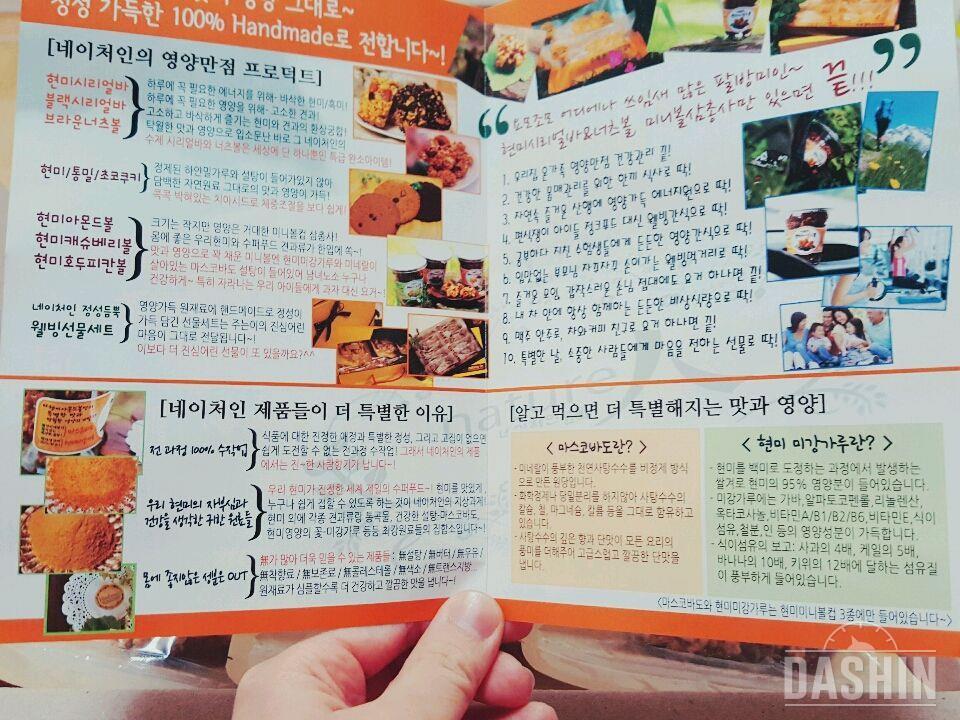 정성 가득한 100% Handmade로 전합니다~!
[네이처인의 영양만점 프로덕트]
현미시리얼바
블랙시리얼바
브라운너츠볼
하루에 꼭 필요한 에너지를 위해- 바삭한 현미/흑미!
하루에 꼭 필요한 영양을 위해- 고소한 견과!
고소하고 바삭하게 즐기는 현미와 견과의 환상궁합!
탁월한 맛과 영양으로 입소문난 바로 그 네이처인의
수제 시리얼바와 너츠볼은 세상에 단 하나뿐인 특급 완소아이템!
현미/통밀/초코쿠키
정제된 하얀밀가루와 설탕이 들어가있지 않아
담백한 자연원료 그대로의 맛과 영양이 가득!
콕콕 박혀있는 치아시드로 체중조절을 보다 쉽게!
현미아몬드볼
현미캐슈베리볼
현미호두피칸볼
크기는 작지만 영양은 거대한 미니볼컵 삼총사!
몸에 좋은 우리현미와 수퍼푸드 견과류가 한입에 쏙~!
맛과 영양으로 꽉 채운 미니볼엔 현미미강가루와 미네랄이
살아있는 마스코바도 설탕이 들어있어 남녀노소 누구나
건강하게~ 특히 자라나는 우리 아이들에게 과자 대신 요거~!
네이처인 정성듬뿍
웰빙선물세트
영양가득 원재료에 핸드메이드로 정성이
가득 담긴 선물세트는 주는이의 진심어린
마음이 그대로 전달됩니다~!
이보다 더 진심어린 선물이 또 있을까요?^^
“ 요모조모 어디에나 쓰임새 많은 팔방미인~
현미시리얼바&너츠볼 미니볼삼총사만 있으면 끝!!! ”
1. 우리집 온가족 영양만점 건강관리 끝!
2. 건강한 몸매관리를 위한 한끼 식사로 딱!
3. 자연속 즐거운 산행에 영양가득 에너지원으로 딱!
4. 편식쟁이 아이들 정크푸드 대신 웰빙간식으로 딱!
5. 공부하다 지친 수험생들에게 든든한 영양간식으로 딱!
6. 입맛없는 부모님 자꾸자꾸 손이가는 웰빙먹거리로 딱!
7. 즐거운 모임, 갑작스러운 손님 접대에도 요거 하나면 끝!
8. 내 차 안에 항상 함께하는 든든한 비상식량으로 딱!
9. 맥주 안주로, 차와커피 친구로 요거 하나면 끝!
10. 특별한 날, 소중한 사람들에게 마음을 전하는 선물로 딱!
[네이처인 제품들이 더 특별한 이유]
전 과정 100% 수작업
식품에 대한 진정한 애정과 특별한 정성, 그리고 고집이 없으면
쉽게 도전할 수 없는 전과정 수작업! 그래서 네이처인의 제품
에서는 진~한 사람향기가 납니다~!
우리 현미의 자부심과
건강을 생각한 귀한 원료들
우리 현미가 진정한 세계 제일의 수퍼푸드~! 현미를 맛있게,
누구나 쉽게 접할 수 있도록 하는 것이 네이처인의 지상과제!
현미 외에 각종 견과류및 통곡물, 건강한 설탕-마스코바도,
현미영양의 꽃-미강가루 등등 최강원료들의 집합소입니다~!
몸에 좋지않은 성분은 OUT
無가 많아 더욱 믿을 수 있는 제품들: 無설탕 / 無버터 / 無우유 /
無착향료 / 無보존료 / 無콜레스테롤 / 無색소 / 無트랜스지방...
원재료가 심플할수록 더 건강하고 깔끔한 맛을 냅니다~!
[알고 먹으면 더 특별해지는 맛과 영양]
< 마스코바도란? >
- 미네랄이 풍부한 천연사탕수수를 비정제 방식
으로 만든 원당입니다.
- 화학정제나 당밀분리를 하지않아 사탕수수의
칼슘, 철, 마그네슘, 칼륨 등을 그대로 함유하고
있습니다.
- 사탕수수의 깊은 향과 단맛이 모든 요리의
풍미를 더해주어 고급스럽고 깔끔한 단맛을
냅니다.
< 현미 미강가루란? >
- 현미를 백미로 도정하는 과정에서 발생하는
쌀겨로 현미의 95% 영양분이 들어있습니다.
- 미강가루에는 가바, 알파토코펜롤, 리놀렌산,
옥타코사놀,비타민A/B1/B2/B6,비타민E,식이
섬유,철분,인 등의 영양성분이 가득합니다.
- 식이섬유의 보고: 사과의 4배, 케일의 5배,
바나나의 10배, 키위의 12배에 달하는 섬유질
이 풍부하게 들어있습니다.
<마스코바도와 현미미강가루는 현미미니볼컵 3종에만 들어있습니다~>
DASHIN